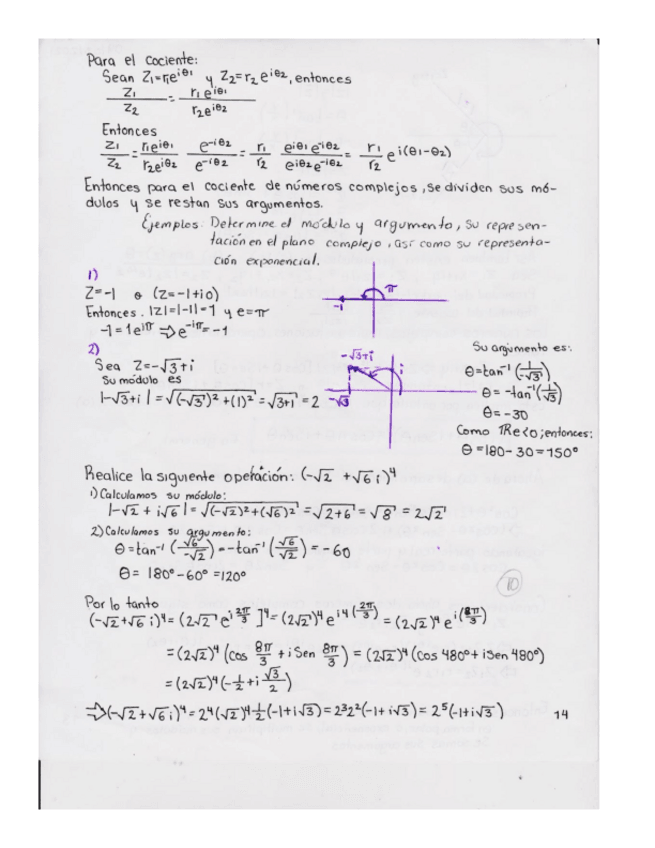 Para el Cociente:
Sean Z₁=r₁e^iθ₁ y Z₂=r₂e^iθ₂, entonces
Z₁/Z₂ = r₁e^iθ₁/r₂e^iθ₂
Entonces
Z₁/Z₂ = r₁e^iθ₁/r₂e^iθ₂ e^-iθ₂/e^-iθ₂ = r₁/r₂ e^iθ₁e^-iθ₂/e^iθ₂e^-iθ₂ = r₁/r₂ e^i(θ₁-θ₂)
Entonces para el cociente de números complejos, se dividen sus mó-
dulos y se restan sus argumentos.
Ejemplos: Determine el módulo y argumento, su represen-
tación en el plano complejo, así como su representa-
ción exponencial.
1)
Z=-1 ó (Z=-1+i0)
Entonces. |Z|=|-1|=1 y e=π
-1=1e^iπ ⇒ e^-iπ=-1
π
-i
2)
Sea Z=-√3+i
Su módulo es
|-√3+i| = √((-√3)²+(1)²) = √(3+1) = 2
-√3+i
i
-√3
Su argumento es:
θ=tan⁻¹(1/-√3)
θ= -tan⁻¹(1/√3)
θ= -30
Como Re<0; entonces:
θ=180-30=150°
Realice la siguiente operación: (-√2 +√6 i)⁴
1) Calculamos su módulo:
|-√2 + i√6| = √((-√2)²+(√6)²) = √(2+6) = √8 = 2√2
2) Calculamos su argumento:
θ=tan⁻¹(√6/-√2) = -tan⁻¹(√6/√2) = -60
θ= 180°-60°=120°
10
Por lo tanto
(-√2+√6 i)⁴=(2√2 e^i 2π/3]⁴=(2√2)⁴e^i4(2π/3) = (2√2)⁴e^i(8π/3)
=(2√2)⁴(Cos 8π/3 + i Sen 8π/3) = (2√2)⁴(Cos 480°+ iSen 480°)
=(2√2)⁴(-1/2+i √3/2)
⇒(-√2+√6 i)⁴=2⁴(√2)⁴1/2(-1+i√3)=2³2²(-1+ i√3)= 2⁵(-1+i√3)
14